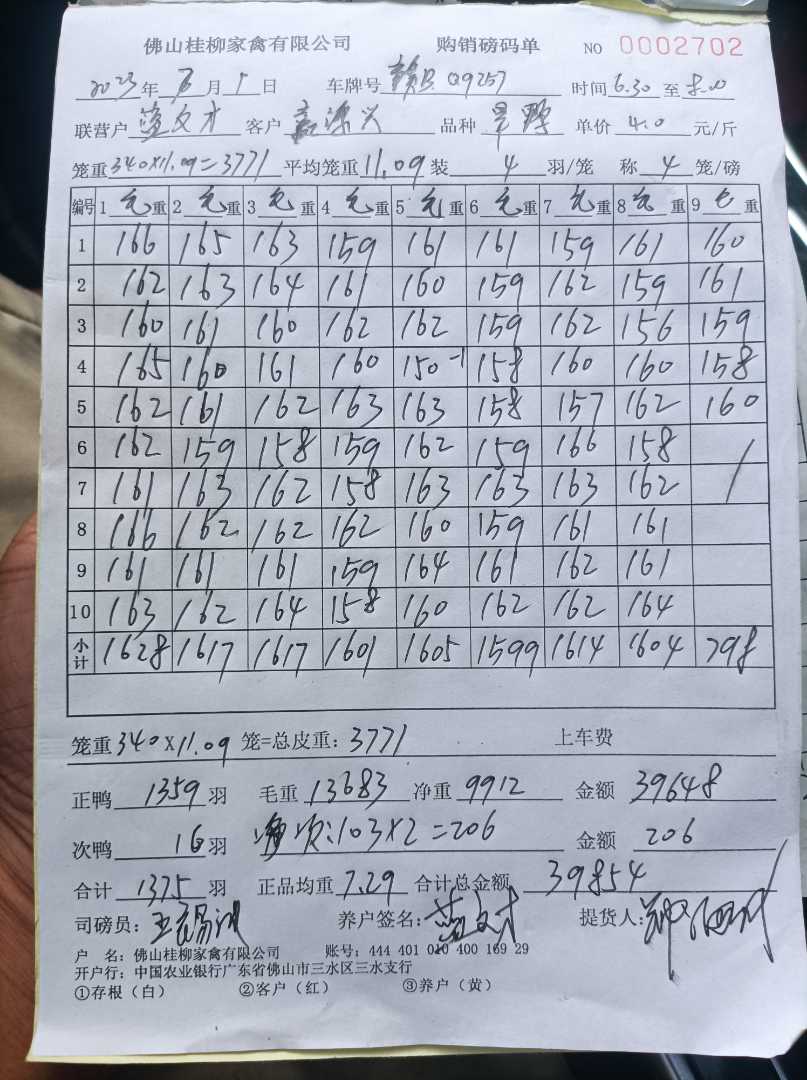 佛山桂柳家禽有限公司 购销磅码单 NO 0002702
2023年6月1日 车牌号赣B Q9257 时间6.30至8.00
联营户蓝文才 客户 品种 单价4.0元/斤
笼重340×11.09=3771 平均笼重11.09装4羽/笼 称4笼/磅
编号 1毛重 2毛重 3毛重 4毛重 5毛重 6毛重 7毛重 8毛重 9毛重
1 166 165 163 159 161 161 159 161 160
2 162 163 164 161 160 159 162 159 161
3 160 161 160 162 162 159 162 156 159
4 165 160 161 160 150-1 158 160 160 158
5 162 161 162 163 163 158 157 162 160
6 162 159 158 159 162 159 166 158
7 161 163 162 158 163 163 163 162
8 166 162 162 162 160 159 161 161
9 161 161 161 159 164 161 162 161
10 163 162 164 158 160 162 162 164
小计 1628 1617 1617 1601 1605 1599 1614 1604 798
笼重340×11.09笼=总皮重：3771 上车费
正鸭1359羽 毛重13683净重9912 金额39648
次鸭16羽 净次:103×2=206 金额206
合计1375羽 正品均重7.29合计总金额39854
司磅员： 养户签名：蓝文才 提货人：
户 名：佛山桂柳家禽有限公司 账号：444 401 010 400 169 29
开户行：中国农业银行广东省佛山市三水区三水支行
①存根（白） ②客户（红） ③养户（黄）